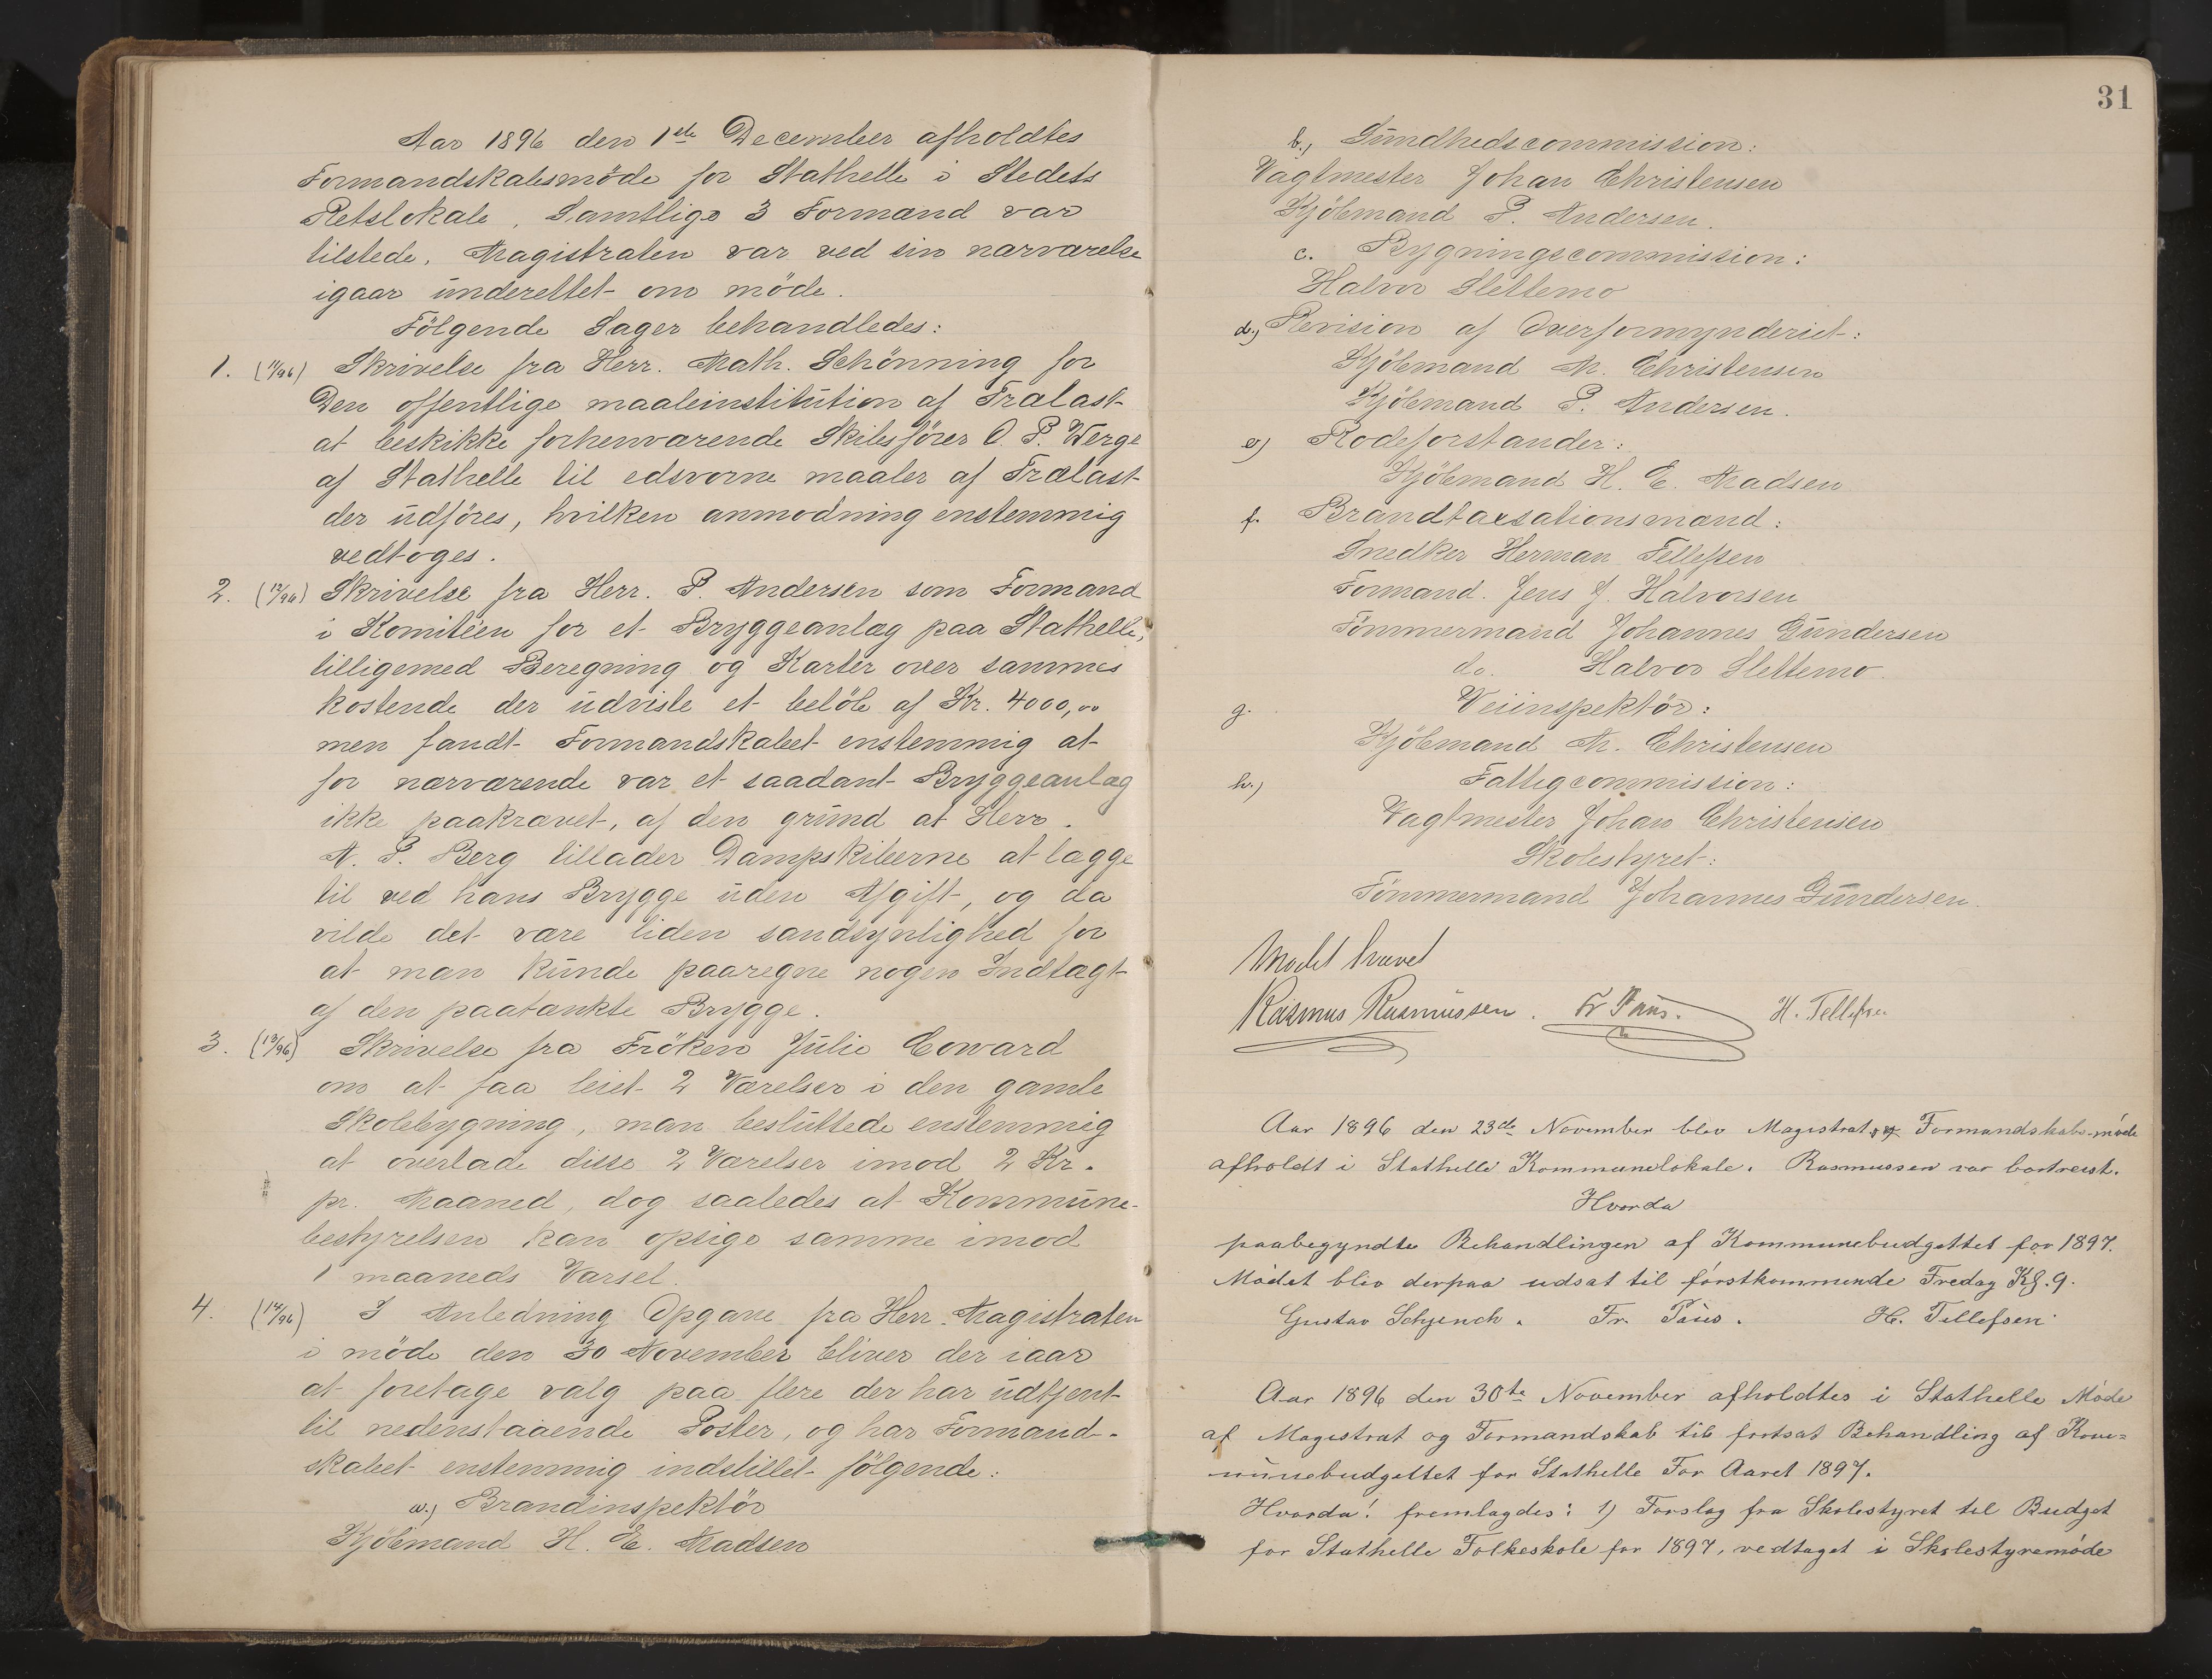 Aar 1896 den 1ste December afholdtes
Formandskabsmöde for Stathelle i Stedets
Retslokale, Samtlige 3 Formænd var
tilstede, Magistraten var ved sin nærværelse
igaar underettet om möde.
Fölgende Sager behandledes:
1. (11/96) Skrivelse fra Herr. Math. Schönning for
Den offentlige maaleinstitution af Trælast
at beskikke forhenværende Skibsförer O. P. Werge
af Stathelle til edsvorne maaler af Trælast
der udföres, hvilken anmodning enstemmig
vedtoges.
2. (12/96) Skrivelse fra Herr. P. Andersen som Formand
i Komitéen for et Bryggeanlæg paa Stathelle,
tilligemed Beregning og Karter over sammes
kostende der udviste et belöb af Kr. 4000,00
men fandt Formandskabet enstemmig at
for nærværende var et saadant Bryggeanlæg
ikke paakrævet, af den grund at Herr.
N. P. Berg tillader Dampskibeerne at lægge
til ved hans Brygge uden Afgift, og da
vilde det være liden sandsynlighed for
at man kunde paaregne nogen Indtægt
af den paatænkte Brygge.
3. (13/96) Skrivelse fra Fröken Julie Coward
om at faa leiet 2 Værelser i den gamle
Skolebygning, man besluttede enstemmig
at overlade disse 2 Værelser imod 2 Kr.
pr. Maaned, dog saaledes at Kommune-
bestyrelsen kan opsige samme imod
1 maaneds Varsel.
4. (14/96) I Anledning Opgave fra Herr. Magistraten
i möde den 30 November bliver der iaar
at foretage valg paa flere der har udtjent
til nedenstaaende Poster, og har Formand-
skabet enstemmig indstillet fölgende:
a.) Brandinspektör
Kjöbmand H. E. Madsen
31
b.) Sundhedscommission:
Vagtmester Johan Christensen
Kjöbmand P. Andersen.
c. Bygningscommission:
Halvor Slettemo
d.) Revision af Overformynderiet:
Kjöbmand M. Christensen
Kjöbmand P. Andersen.
e) Rodeforstander:
Kjöbmand H. E. Madsen
f. Brandtaxationsmænd:
Snedker Herman Tellefsen
Formand. Jens J. Halvorsen
Tömmermand Johannes Gundersen
do. Halvor Slettemo.
g. Veiinspektör:
Kjöbmand M. Christensen
h.) Fattigcommission:
Vagtmester Johan Christensen
Skolestyret:
Tömmermand Johannes Gundersen.
Mödet hævet
Rasmus Rasmussen. Fr Paus. H. Tellefsen
Aar 1896 den 23de November blev Magistrat og Formandskabs-möde
afholdt i Stathelle Kommunelokale. Rasmussen var bortreist.
Hvorda
paabegyndtes Behandlingen af Kommunebudgettet for 1897.
Mödet blev derpaa udsat til förstkommende Fredag Kl. 9.
Gustav Schjench. Fr. Paus. H. Tellefsen
Aar 1896 den 30te November afholdtes i Stathelle Möde
af Magistrat og Formandskab til fortsat Behandling af Kom=
munebudgettet for Stathelle For Aaret 1897.
Hvorda! fremlagdes: 1) Forslag fra Skolestyret til Budget
for Stathelle Folkeskole for 1897, vedtaget i Skolestyremöde